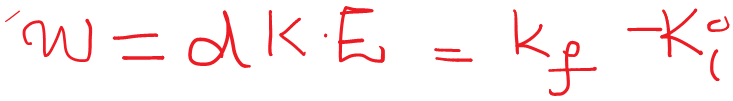 W = dK.E = Kf - Ki